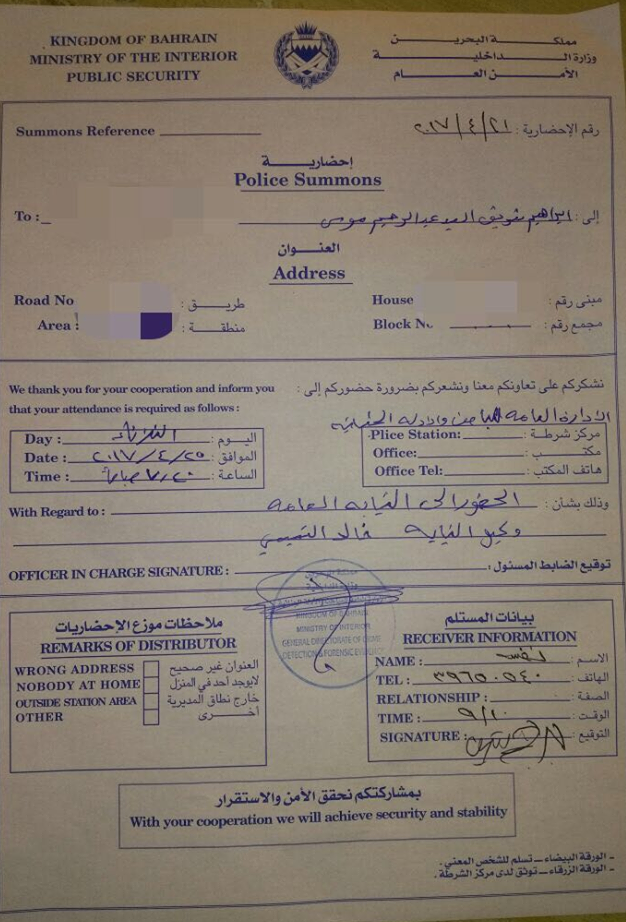 KINGDOM OF BAHRAIN
MINISTRY OF THE INTERIOR
PUBLIC SECURITY
مملكة البحرين
وزارة الداخلية
الأمن العام
Summons Reference
رقم الإحضارية : ٢٠١٧/٤/٢١
إحضارية
Police Summons
To :
إلى : ابراهيم السيد عبدالرحيم موسى
العنوان
Address
Road No طريق :
House مبنى رقم :
Area : منطقة :
Block No مجمع رقم :
We thank you for your cooperation and inform you
that your attendance is required as follows :
نشكركم على تعاونكم معنا ونشعركم بضرورة حضوركم إلى :
الادارة العامة للمباحث والادلة الجنائية
Day : الثلاثاء اليوم :
Date : ٢٠١٧/٤/٢٥ الموافق :
Time : ٧٫٢٠ صباحاً الساعة :
Plice Station: مركز شرطة :
Office: مكتب :
Office Tel: هاتف المكتب :
With Regard to :
وذلك بشأن : الحضور الى النيابه العامه
وكيل النيابه خالد التميمي
OFFICER IN CHARGE SIGNATURE :
توقيع الضابط المسئول :
KINGDOM OF BAHRAIN
MINISTRY OF INTERIOR
GENERAL DIRECTORATE OF CRIME
DETECTION & FORENSIC EVIDENCE
ملاحظات موزع الإحضاريات
REMARKS OF DISTRIBUTOR
WRONG ADDRESS العنوان غير صحيح
NOBODY AT HOME لايوجد أحد في المنزل
OUTSIDE STATION AREA خارج نطاق المديرية
OTHER أخرى
بيانات المستلم
RECEIVER INFORMATION
NAME : نفسه الاسم :
TEL : ٣٩٦٥٠٥٤٠ الهاتف :
RELATIONSHIP : الصفة :
TIME : ٩/١٠ الوقت :
SIGNATURE : التوقيع :
بمشاركتكم نحقق الأمن والاستقرار
With your cooperation we will achieve security and stability
- الورقة البيضاء - تسلم للشخص المعني .
- الورقة الزرقاء - توثق لدى مركز الشرطة .